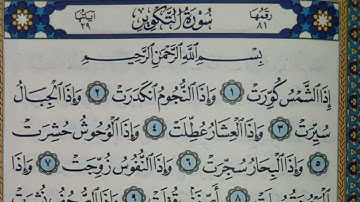 رقمها ٨١
سُورَةُ التَّكْوِيرِ
آياتها ٢٩
بِسْمِ اللَّهِ الرَّحْمَٰنِ الرَّحِيمِ
إِذَا الشَّمْسُ كُوِّرَتْ ١ وَإِذَا النُّجُومُ انْكَدَرَتْ ٢ وَإِذَا الْجِبَالُ
سُيِّرَتْ ٣ وَإِذَا الْعِشَارُ عُطِّلَتْ ٤ وَإِذَا الْوُحُوشُ حُشِرَتْ
٥ وَإِذَا الْبِحَارُ سُجِّرَتْ ٦ وَإِذَا النُّفُوسُ زُوِّجَتْ ٧ وَإِذَا
٨ بِأَيِّ ٩ وَإِذَا الصُّحُفُ نُشِرَتْ